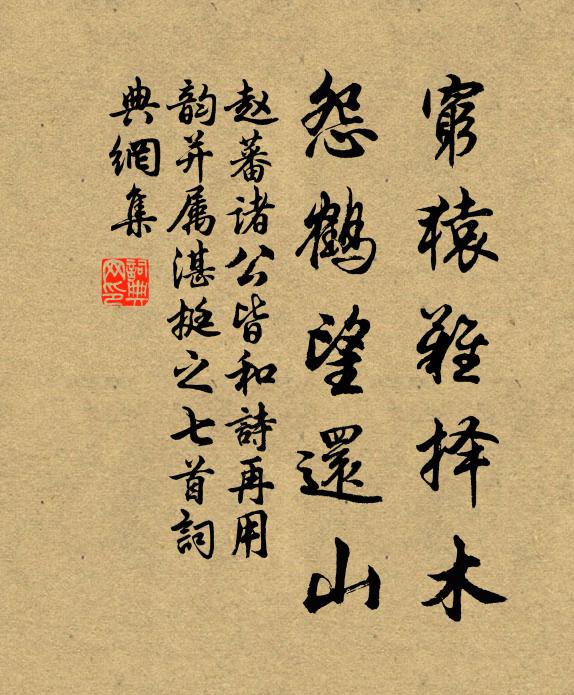 窮猿難择木
怨鶴望還山
赵蕃诸公皆和詩再用
韵并属湛挺之七首詞
典網集
詞典
网印